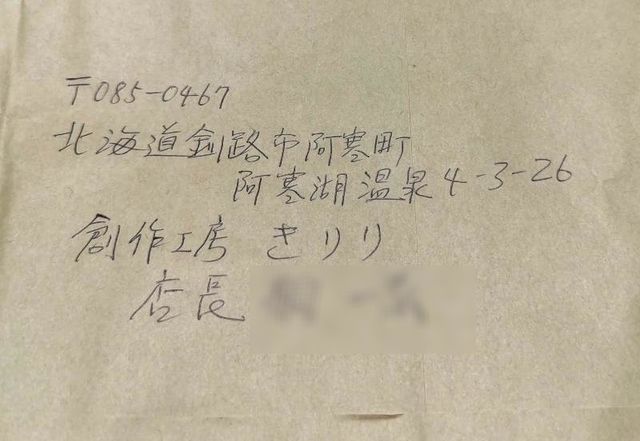 〒085-0467
北海道釧路市阿寒町
阿寒湖温泉4-3-26
創作工房 きりり
店長